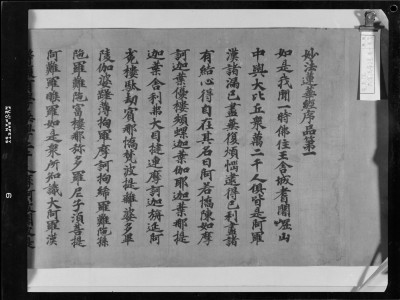 妙法蓮華經序品第一
如是我聞一時佛住王舍城耆闍崛山
中與大比丘眾萬二千人俱皆是阿羅
漢諸漏已盡無復煩惱逮得己利盡諸
有結心得自在其名曰阿若憍陳如摩
訶迦葉優樓頻螺迦葉伽耶迦葉那提
迦葉舍利弗大目揵連摩訶迦旃延阿
㝹樓馱劫賓那憍梵波提離婆多畢
陵伽婆蹉薄拘羅摩訶拘絺羅難陀孫
陀羅難陀富樓那彌多羅尼子須菩提
阿難羅睺羅如是眾所知識大阿羅漢